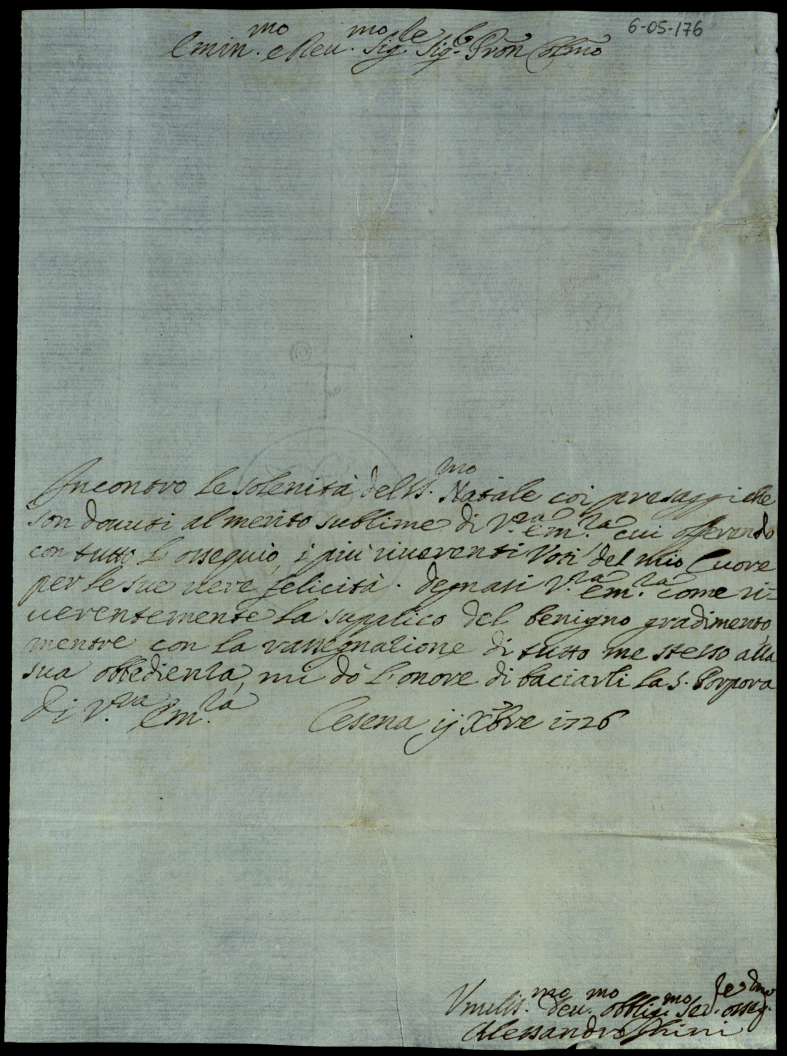 6-05-176
Emin.mo e Reu.mo Sig.re Sig.r Pron Colmo
Incontro le solenità del SS.mo Natale coi presaggi che
son douuti al merito sublime di V.ra Em.za cui offerendo
con tutto l'ossequio i più riuerenti Voti del mio Cuore
per le sue uere felicità. degnasi V.ra Em.za come ri=
uerentemente la supplico del benigno gradimento,
mentre con la rassegnazione di tutto me stesso alla
sua obbedienza, mi dò l'onore di baciarli la S. Porpora
di V.ra Em.za Cesena ij Xbre 1726
Vmilis.mo deu.mo obblig.mo Ser.
Alessandro Ghini